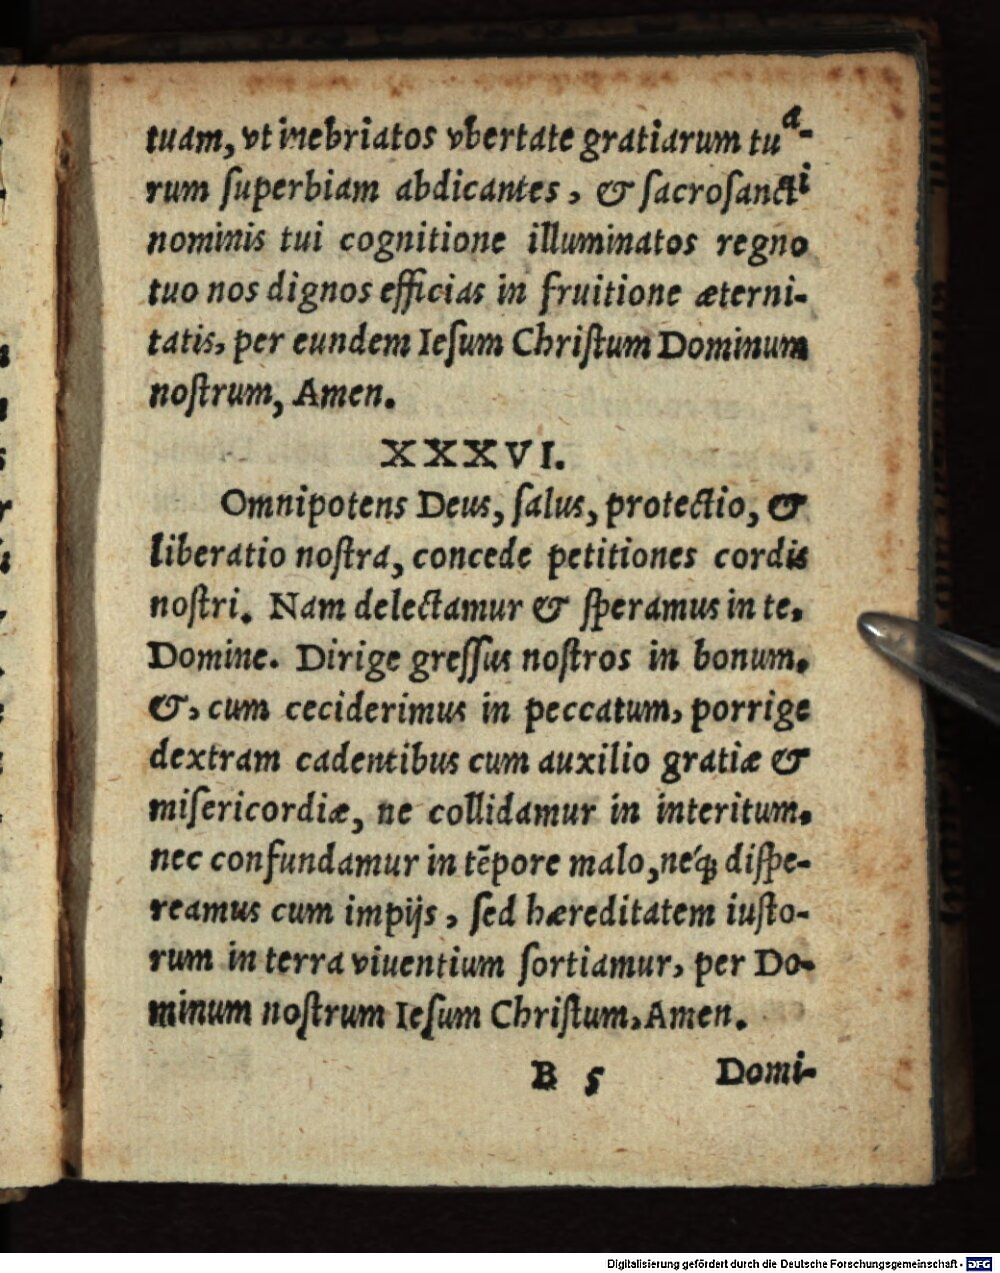 tuam, vt inebriatos vbertate gratiarum tua-
rum ſuperbiam abdicantes, & ſacroſancti
nominis tui cognitione illuminatos regno
tuo nos dignos efficias in fruitione æterni-
tatis, per eundem Ieſum Chriſtum Dominum
noſtrum, Amen.
XXXVI.
Omnipotens Deus, ſalus, protectio, &
liberatio noſtra, concede petitiones cordis
noſtri. Nam delectamur & ſperamus in te,
Domine. Dirige greſſus noſtros in bonum,
&, cum ceciderimus in peccatum, porrige
dextram cadentibus cum auxilio gratiæ &
miſericordiæ, ne collidamur in interitum,
nec confundamur in tẽpore malo, neq́ꝫ diſpe-
reamus cum impijs, ſed hæreditatem iuſto-
rum in terra viuentium ſortiamur, per Do-
minum noſtrum Ieſum Chriſtum, Amen.
B 5 Domi-
Digitalisierung gefördert durch die Deutsche Forschungsgemeinschaft - DFG